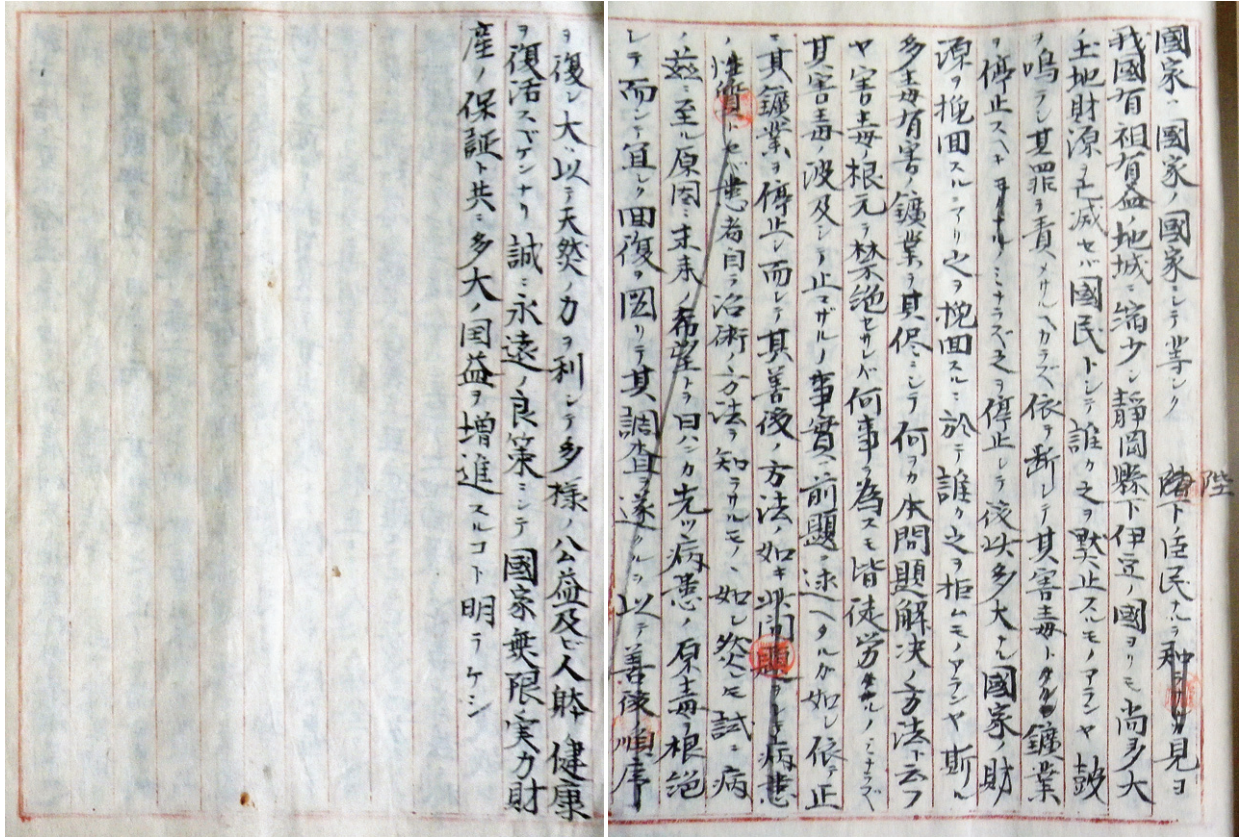 國家ハ國家ノ國家ニシテ等シク 陛下ノ臣民ナルヲ 見ヨ
我國有祖有益ノ地域ニ縮少シ靜岡縣下伊豆ノ國ヨリモ尚多大
ノ土地財源ヲ亡滅セバ國民トシテ誰カ之ヲ黙止スルモノアランヤ鼓
ヲ鳴ラシ其罪ヲ責メサルヘカラズ依テ断シテ其害毒トタル鑛業
ヲ停止スヘキ ノミナラズ之ヲ停止シテ後此多大ナル國家ノ財
源ヲ挽回スルニアリ之ヲ挽回スルニ於テ誰カ之ヲ拒ムモノアランヤ斯ル
多毒有害ノ鑛業ヲ其侭ニシテ何ヲカ本問題解决ノ方法ト云フ
ヤ害毒ノ根元ヲ禁絶セサレバ何事ヲ為スモ皆徒労 ノミナラズ
其害毒ノ波及シテ止マザルノ事實ハ前題ニ述ヘタルカ如シ依テ止
ニ其鑛業ヲ停止シ而シテ其善後ノ方法ノ如キ此問題ヲシテ病患
ノ性質トセバ患者自ラ治術ノ方法ヲ知ラサルモノヽ如シ然レモ試ニ病
ノ茲ニ至ル原因ニ未来ノ希望トヲ曰ハンカ先ツ病患ノ原毒ヲ根絶
シテ而シテ宜シク回復ヲ図リテ其調査ヲ遂クルヲ以テ善後順序
ヲ復シ大ハ以テ天然ノ力ヲ利シテ多様ノ公益及ビ人躰ノ健康
ヲ復活スベケンナリ誠ニ永遠ノ良策ニシテ國家無限ノ実力財
産ノ保証ト共ニ多大ノ国益ヲ増進スルコト明ラケシ